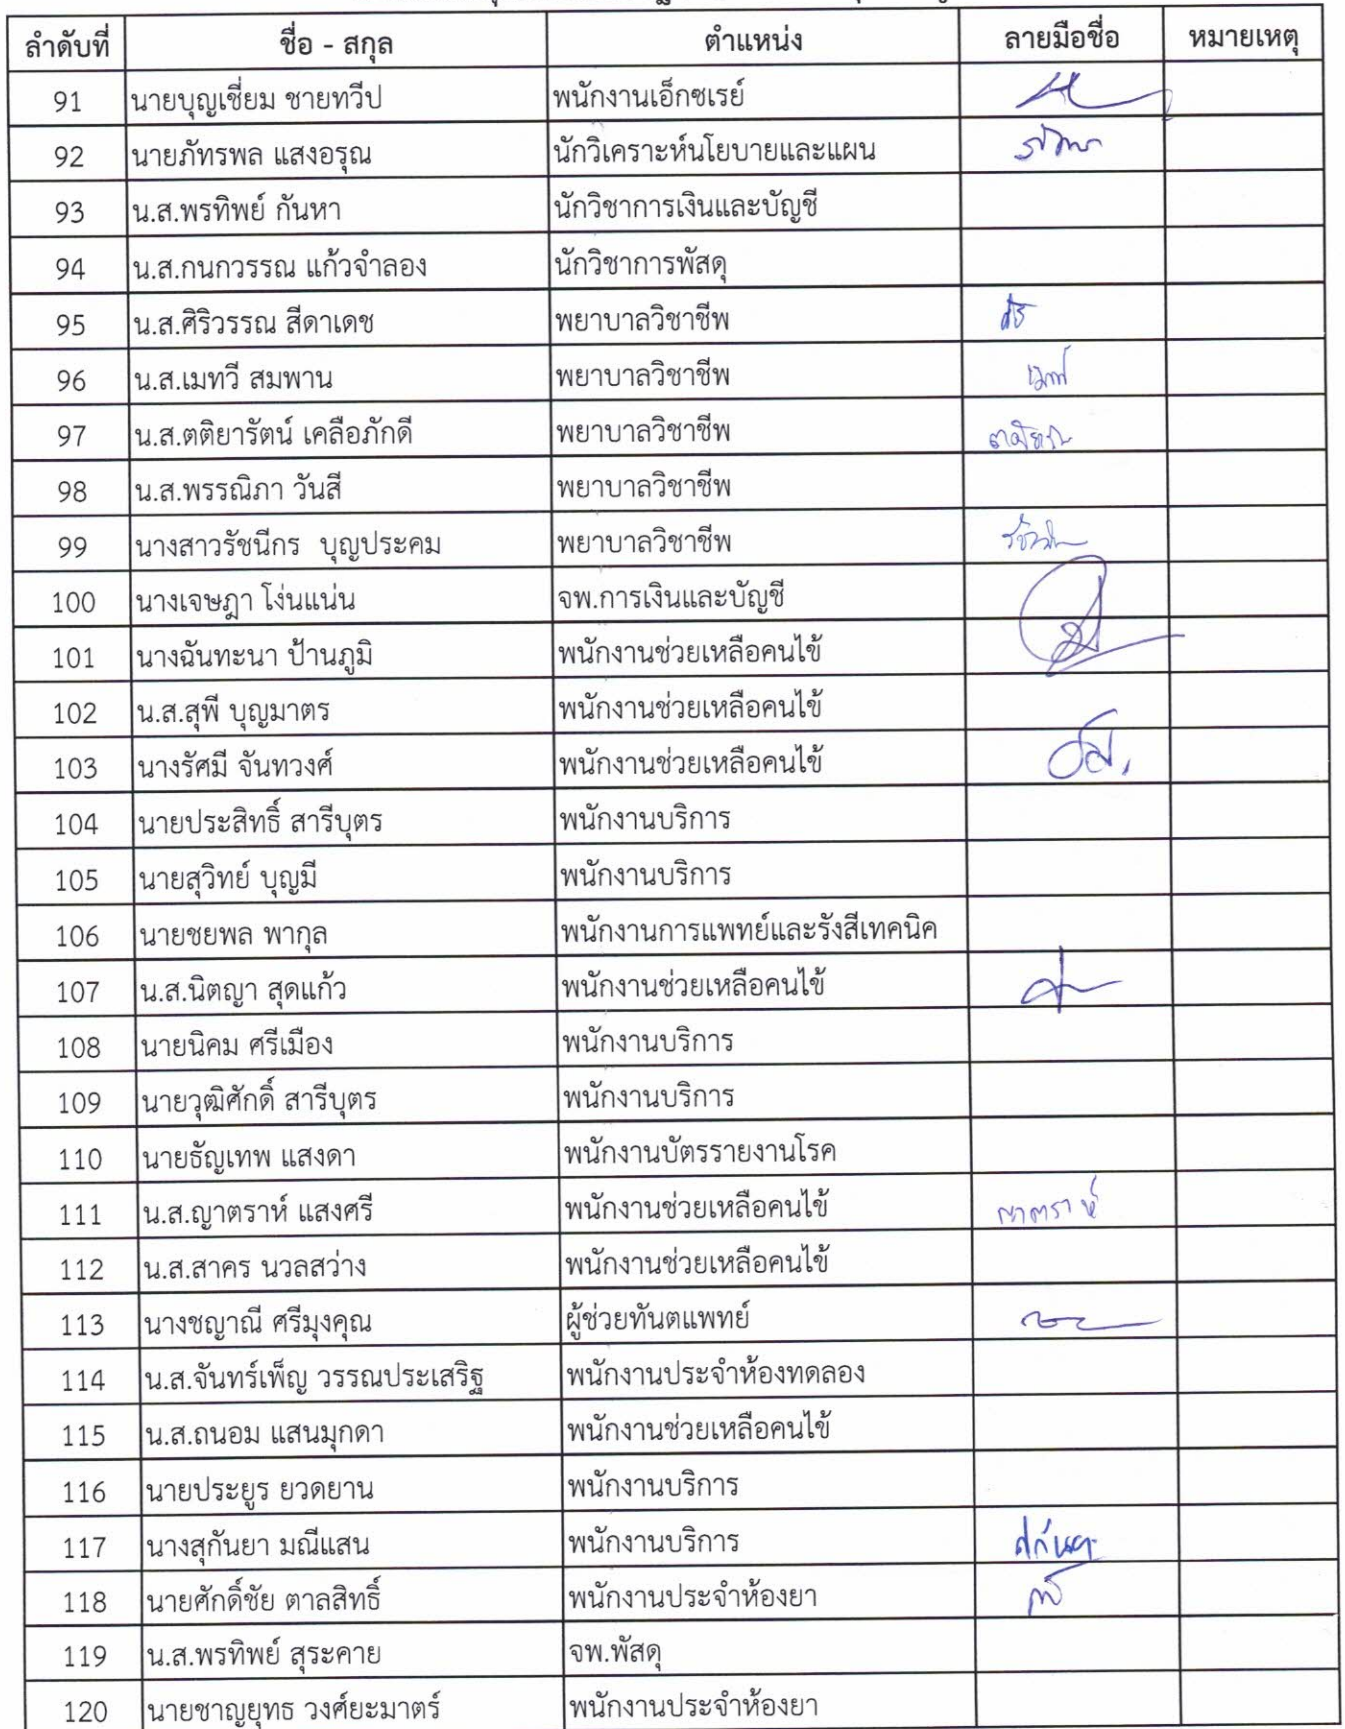 ลำดับที่ ชื่อ - สกุล ตำแหน่ง ลายมือชื่อ หมายเหตุ
91 นายบุญเชี่ยม ชายทวีป พนักงานเอ็กซเรย์
92 นายภัทรพล แสงอรุณ นักวิเคราะห์นโยบายและแผน
93 น.ส.พรทิพย์ กันหา นักวิชาการเงินและบัญชี
94 น.ส.กนกวรรณ แก้วจำลอง นักวิชาการพัสดุ
95 น.ส.ศิริวรรณ สีดาเดช พยาบาลวิชาชีพ
96 น.ส.เมทวี สมพาน พยาบาลวิชาชีพ
97 น.ส.ตติยารัตน์ เคลือภักดี พยาบาลวิชาชีพ
98 น.ส.พรรณิภา วันสี พยาบาลวิชาชีพ
99 นางสาวรัชนีกร บุญประคม พยาบาลวิชาชีพ
100 นางเจษฎา โง่นแน่น จพ.การเงินและบัญชี
101 นางฉันทะนา ป้านภูมิ พนักงานช่วยเหลือคนไข้
102 น.ส.สุพี บุญมาตร พนักงานช่วยเหลือคนไข้
103 นางรัศมี จันทวงศ์ พนักงานช่วยเหลือคนไข้
104 นายประสิทธิ์ สารีบุตร พนักงานบริการ
105 นายสุวิทย์ บุญมี พนักงานบริการ
106 นายชยพล พากุล พนักงานการแพทย์และรังสีเทคนิค
107 น.ส.นิตญา สุดแก้ว พนักงานช่วยเหลือคนไข้
108 นายนิคม ศรีเมือง พนักงานบริการ
109 นายวุฒิศักดิ์ สารีบุตร พนักงานบริการ
110 นายธัญเทพ แสงดา พนักงานบัตรรายงานโรค
111 น.ส.ญาตราห์ แสงศรี พนักงานช่วยเหลือคนไข้ ญาตราห์
112 น.ส.สาคร นวลสว่าง พนักงานช่วยเหลือคนไข้
113 นางชญาณี ศรีมุงคุณ ผู้ช่วยทันตแพทย์
114 น.ส.จันทร์เพ็ญ วรรณประเสริฐ พนักงานประจำห้องทดลอง
115 น.ส.ถนอม แสนมุกดา พนักงานช่วยเหลือคนไข้
116 นายประยูร ยวดยาน พนักงานบริการ
117 นางสุกันยา มณีแสน พนักงานบริการ สุกันยา
118 นายศักดิ์ชัย ตาลสิทธิ์ พนักงานประจำห้องยา
119 น.ส.พรทิพย์ สุระคาย จพ.พัสดุ
120 นายชาญยุทธ วงศ์ยะมาตร์ พนักงานประจำห้องยา